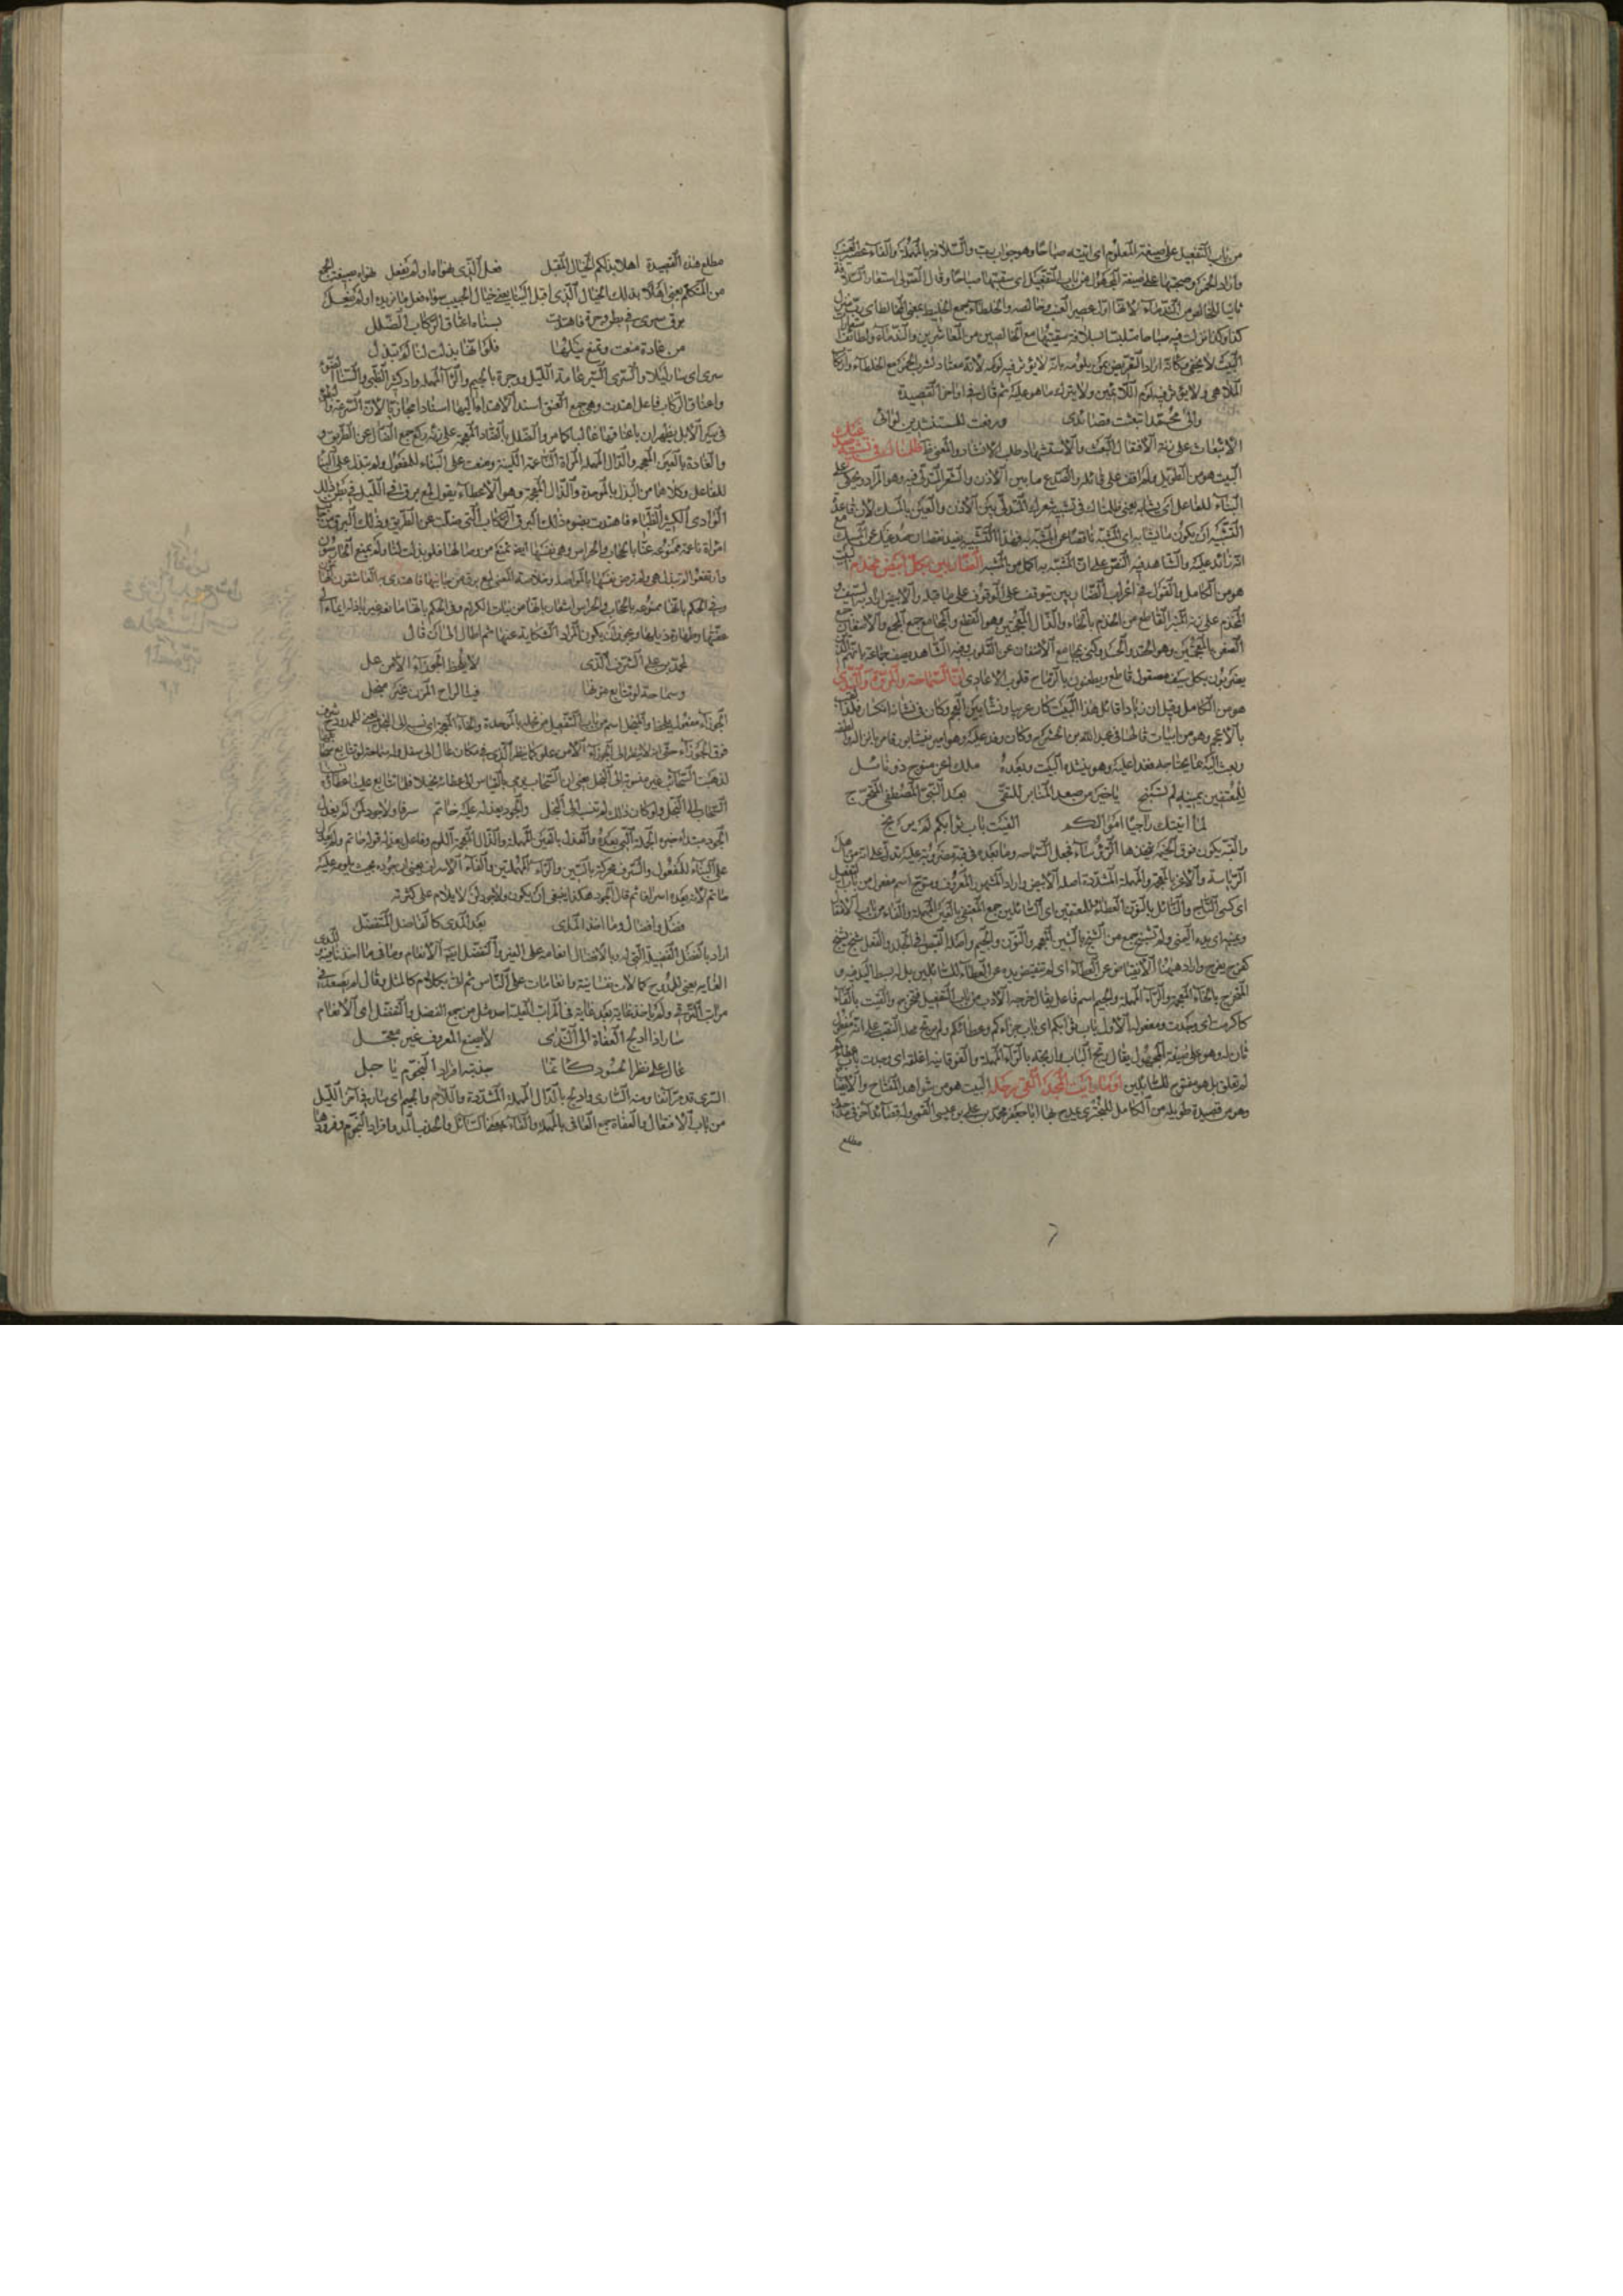 من باب التفعيل على صيغة المعلوم اى اتيته صباحا وهو جواب رب والسلافة بالمهملة والفاء عصير العنب
واراد الخمر وصبحتها على صيغة المجهول من باب التفعيل اى سقيتها صباحا
ثانيا للخالص من الندماء لانها اول عصير العنب وخالصه والخلطاء جمع الخليط بمعنى المخالط اى رب منزل
كذا وكذا نزلت فيه صباحا متلبسا بسلافة سقيتها مع الخالصين من المعاشرين والندماء ولطائف
البيت لا يخفى وكانه اراد التعريض بمن يلومه بانه لا يؤثر فيه لومه لانه معتاد لشرب الخمر مع الخلطاء
الملاهى ولا يؤثر فيه لوم اللائمين ولا يترك ما هو عليه ثم قال فى اواخر القصيدة
والى محمد ابتعثت قصائدى ورفعت للمستنشدين لوائى
الابتعاث على زنة الافتعال البعث والاستنشاد طلب الانشاد والمعنى ظ ظلمناك فى تشبيه صدغيك
البيت هو من الطويل ولم اقف على قائله والصدغ ما بين الاذن والشعر المتدلى فيه وهو المراد
البناء للفاعل اى يشابه يعنى ظلمناك فى تشبيه شعرك المتدلى بين الاذن والعين بالمسك لان قاعدة
التشبيه ان يكون ما يشابه اى المشبه ناقصا عن المشبه به فهذا التشبيه يفيد نقصان صدغيك عن المسك مع
انه زائد عليه والشاهد فيه النص على ان المشبه به اكمل من المشبه الضاربين بكل ابيض مخذم البيت
هو من الكامل والقول فى اعراب الضاربين يتوقف على الوقوف على ما قبله والابيض اراد به السيف
المخذم على زنة المنبر القاطع من الخذم بالخاء والذال المعجمتين وهو القطع والمجامع جمع المجمع والاضغان جمع
الضغن بالمعجمتين وهو الحقد والحسد وكنى بمجامع الاضغان عن القلوب وفيه الشاهد يصف جماعة بانهم
يضربون بكل سيف مصقول قاطع ويطعنون بالرماح قلوب الاعادى ان السماحة والمروءة والندى
هو من الكامل وقيل ان زيادا قائل هذا البيت كان عربيا ونشا بين العجم وكان فى لسانه لكنة فلذا لقب
بالاعجم وهو من ابيات قالها فى عبد الله بن الحشرج وكان وفد عليه وهو امير نيشابور فامر بانزاله والطفه
وبعث اليه ما يحتاجه فغدا عليه وهو ينشده البيت وبعده ملك اغر متوج ذو نائل
للمعتفين يمينه لم تشنج يا خير من صعد المنابر للتقى بعد النبى المصطفى المتحرج
لما اتيتك راجيا اموالكم الفيت باب نوالكم لم يرتج
والقبة يكون فوق الخيمة يتخذها الرؤساء فجعل السماحة وما بعده فى قبة مضروبة عليه يدل على انه من اهل
الرياسة والاغر بالمعجمة والمهملة المشددة اصله الابيض واراد المشهور المعروف ومتوج اسم مفعول من باب التفعيل
اى كسى التاج والنائل بالنون العطاء للمعتفين اى السائلين جمع المعتفى بالعين المهملة والفاء من باب الافتعال
ويمينه اى يده اليمنى ولم تشنج من الشنج بالشين المعجمة والنون والجيم واصله التقبض فى الجلد والفعل شنج يشنج
كفرح يفرح واراد ههنا الانقباض عن العطاء اى لم تنقبض يده عن العطاء للسائلين بل له بسط اليد فيه و
المتحرج بالحاء المهملة والراء المهملة والجيم اسم فاعل
كاكرمت اى وجدت ومفعوله الاول باب نوالكم اى باب جزاءكم وعطائكم ولم يرتج محله النصب على انه مفعول
ثان له وهو على صيغة المجهول يقال رتج الباب وارتجه بالراء المهملة والفوقانية اغلقه اى وجدت باب عطائكم
لم يغلق بل هو مفتوح للسائلين او ما رايت المجد القى رحله البيت هو من شواهد المفتاح والايضاح
وهو من قصيدة طويلة من الكامل للبحترى يمدح بها ابا جعفر محمد بن على بن عيسى القمى وله قصائد اخر فى مدحه
مطلع
مطلع هذه القصيدة اهلا بذلكم الخيال المقبل فعل الذى نهواه او لم يفعل نهواه بصيغة الجمع
من المتكلم يعنى اهلا بذلك الخيال الذى اقبل الينا يعنى خيال الحبيب سواء فعل ما نريده او لم يفعل
برق سرى فى بطن وجرة فاهتدت بسناه اعناق الركاب الضلل
من غادة منعت وتمنع نيلها فلو انها بذلت لنا لم تبذل
سرى اى سار ليلا والسرى السير عامة الليل ووجرة بالجيم والراء المهملة واد كثير الظبى والسنا الضوء
واعناق الركاب فاعل اهتدت وهى جمع العنق اسند الاهتداء اليها اسنادا مجازيا لان السرعة والبطؤ
فى سير الابل يظهران باعناقها غالبا كما مر والضلل بالضاد المعجمة على زنة ركع جمع الضال عن الطريق و
والغادة بالغين المعجمة والدال المهملة المراة الناعمة اللينة ومنعت على البناء للمفعول ولم تبذل على البناء
للفاعل وكلاهما من البذل بالموحدة والذال المعجمة وهو الاعطاء يقول لمع برق فى الليل فى بطن ذلك
الوادى الكثير الظباء فاهتدت بضوء ذلك البرق الركاب التى ضلت عن الطريق وذلك البرق من
امراة ناعمة ممنوعة عنا بالحجاب والحراس وهى بنفسها ايضا تمنع من وصالها فلو بذلت لنا ولم يمنع الحارسون
وارتفعوا لم تبذل هى ولم ترض نفسها بالمواصلة وخلاصة المعنى لمع برق من جانبها فاهتدى به العاشقون
وفى الحكم بانها ممنوعة بالحجاب والحراس اشعار بانها من بنات الكرام وفى الحكم بانها مانعة غير باذلة ايماء الى
عفتها وطهارة ذيلها ويجوز ان يكون المراد الشكاية عنها ثم اطال الى ان قال
لمحمد بن على الشرف الذى لا يلحظ الجوزاء الا من عل
وسماحة لولا تتابع مزنها فينا لراح المزن غير مبخل
الجوزاء مفعول يلحظ والمبخل اسم من باب التفعيل من بخله بالموحدة والخاء المعجمة اى نسبه الى البخل يعنى للممدوح شرف
فوق الجوزاء حتى انه لا ينظر الى الجوزاء الا من علو كما ينظر الذى فى مكان عال الى سفل وله سماحة لولا تتابع سحابها
لذهبت السحائب غير منسوبة الى البخل يعنى ان السحاب سمى بالقياس الى عطائه بخيلا
السحاب الى البخل ولو كان ذلك لم تنسب الى البخل والجود يعذله عليه حاتم سرفا ولا جود لمن لم يعذل
الجود مبتدا وخبره الجملة التى بعده والعذل بالعين المهملة والذال المعجمة اللوم وفاعل يعذله قوله حاتم ولم يعذل
على البناء للمفعول والسرف محركة بالسين والراء المهملتين والفاء الاسراف يعنى ان جوده بحيث يلومه عليه
حاتم لانه يعده اسرافا ثم قال الجود هكذا ينبغى ان يكون ولا جود لمن لا يلام على كثرته
فضل وافضال وما اخذ المدى بعد المدى كالفاضل المتفضل
اراد بالفضل الفضيلة التى له وبالافضال انعامه على الغير والتفضل ايضا الانعام وما فى ما اخذ نافية والمدى
الغاية يعنى للممدوح كمالات نفسانية وانعامات على الناس ثم اتى بكلام كالمثل وقال لم يصعد فى
مراتب الترقى ولم ياخذ غاية بعد غاية فى المراتب العلية احد مثل من جمع الفضل والتفضل اى الانعام
سار اذا ادلج العفاة الى الندى لا يصنع المعروف غير معجل
عال على نظر الحسود كانما جذبته افراد النجوم باحبل
السرى قد مر آنفا ومنه السارى وادلج بالدال المهملة المشددة واللام والجيم اى سار فى آخر الليل
من باب الافتعال والعفاة جمع العافى بالمهملة والفاء بمعنى السائل والجذب المد وافراد النجوم وفرودها